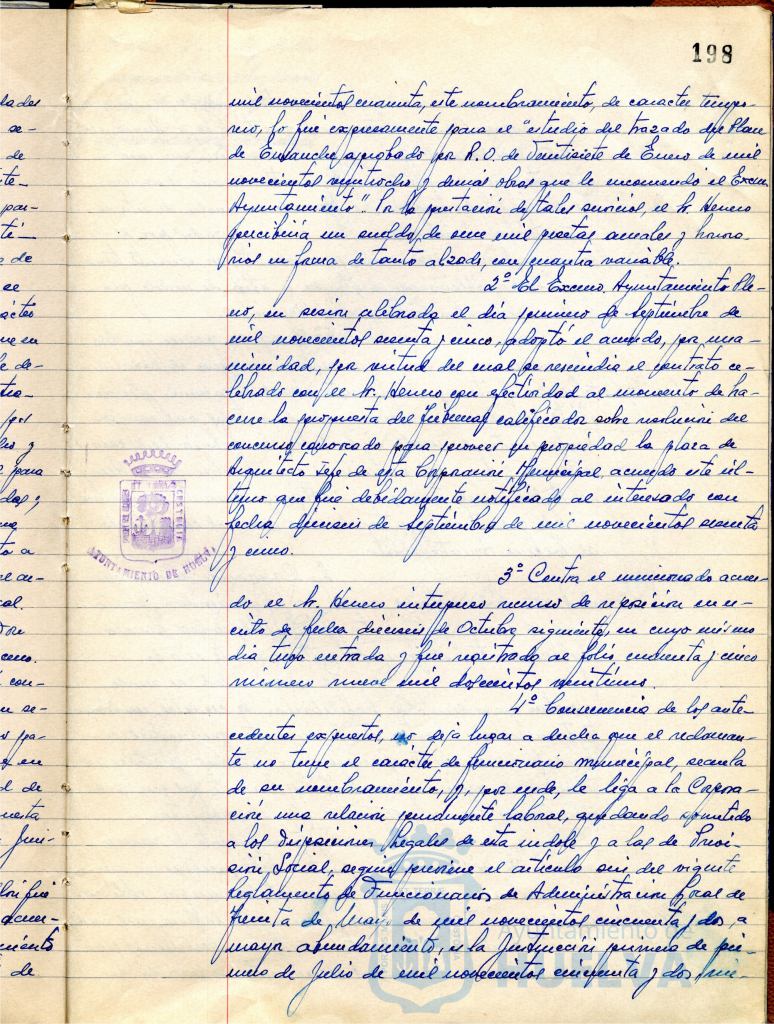 198
mil novecientos cuarenta, este nombramiento, de caracter tempo-
ro, lo fué expresamente para el "estudio del trazado del Plano
de Ensanche aprobado por R.O. de Veintisiete de Enero de mil
novecientos veintiocho y demás obras que le encomendó el Excmo
Ayuntamiento". Por la prestación de tales servicios, el Sr. Herrero
percibiría un sueldo de once mil pesetas anuales y honora-
rios en forma de tanto alzado, con cuantía variable.
2º El Excmo. Ayuntamiento Ple-
no, en sesión celebrada el día primero de Septiembre de
mil novecientos sesenta y cinco, adoptó el acuerdo, por una-
nimidad, por virtud del cual se rescindía el contrato ce-
lebrado con el Sr. Herrero con efectividad al momento de ha-
cerse la propuesta del Tribunal calificador sobre resolución del
concurso convocado para proveer en propiedad la plaza de
Arquitecto Jefe de esta Corporación Municipal, acuerdo este úl-
timo que fué debidamente notificado al interesado con
fecha dieciseis de Septiembre de mil novecientos sesenta
y cinco.
3º Contra el mencionado acuer-
do el Sr. Herrero interpuso recurso de reposición en es-
crito de fecha dieciseis de Octubre siguiente, en cuyo mismo
día tuvo entrada y fué registrado al folio cincuenta y cinco
número nueve mil doscientos veintiuno.
4º Consecuencia de los ante-
cedentes expuestos, no deja lugar a dudas que el reclaman-
te no tiene el carácter de funcionario municipal, secuela
de su nombramiento, y, por ende, le liga a la Corpora-
ción una relación puramente laboral, quedando sometido
a las Disposiciones Legales de esta indole y a las de Previ-
sión Social, según previene el artículo seis del vigente
Reglamento de Funcionarios de Administración Local de
Treinta de Mayo de mil novecientos cincuenta y dos, a
mayor abundamiento, es la Instrucción primera de pri-
mero de Julio de mil novecientos cincuenta y dos,
AYUNTAMIENTO DE HUELVA
Ayuntamiento de
HUELVA